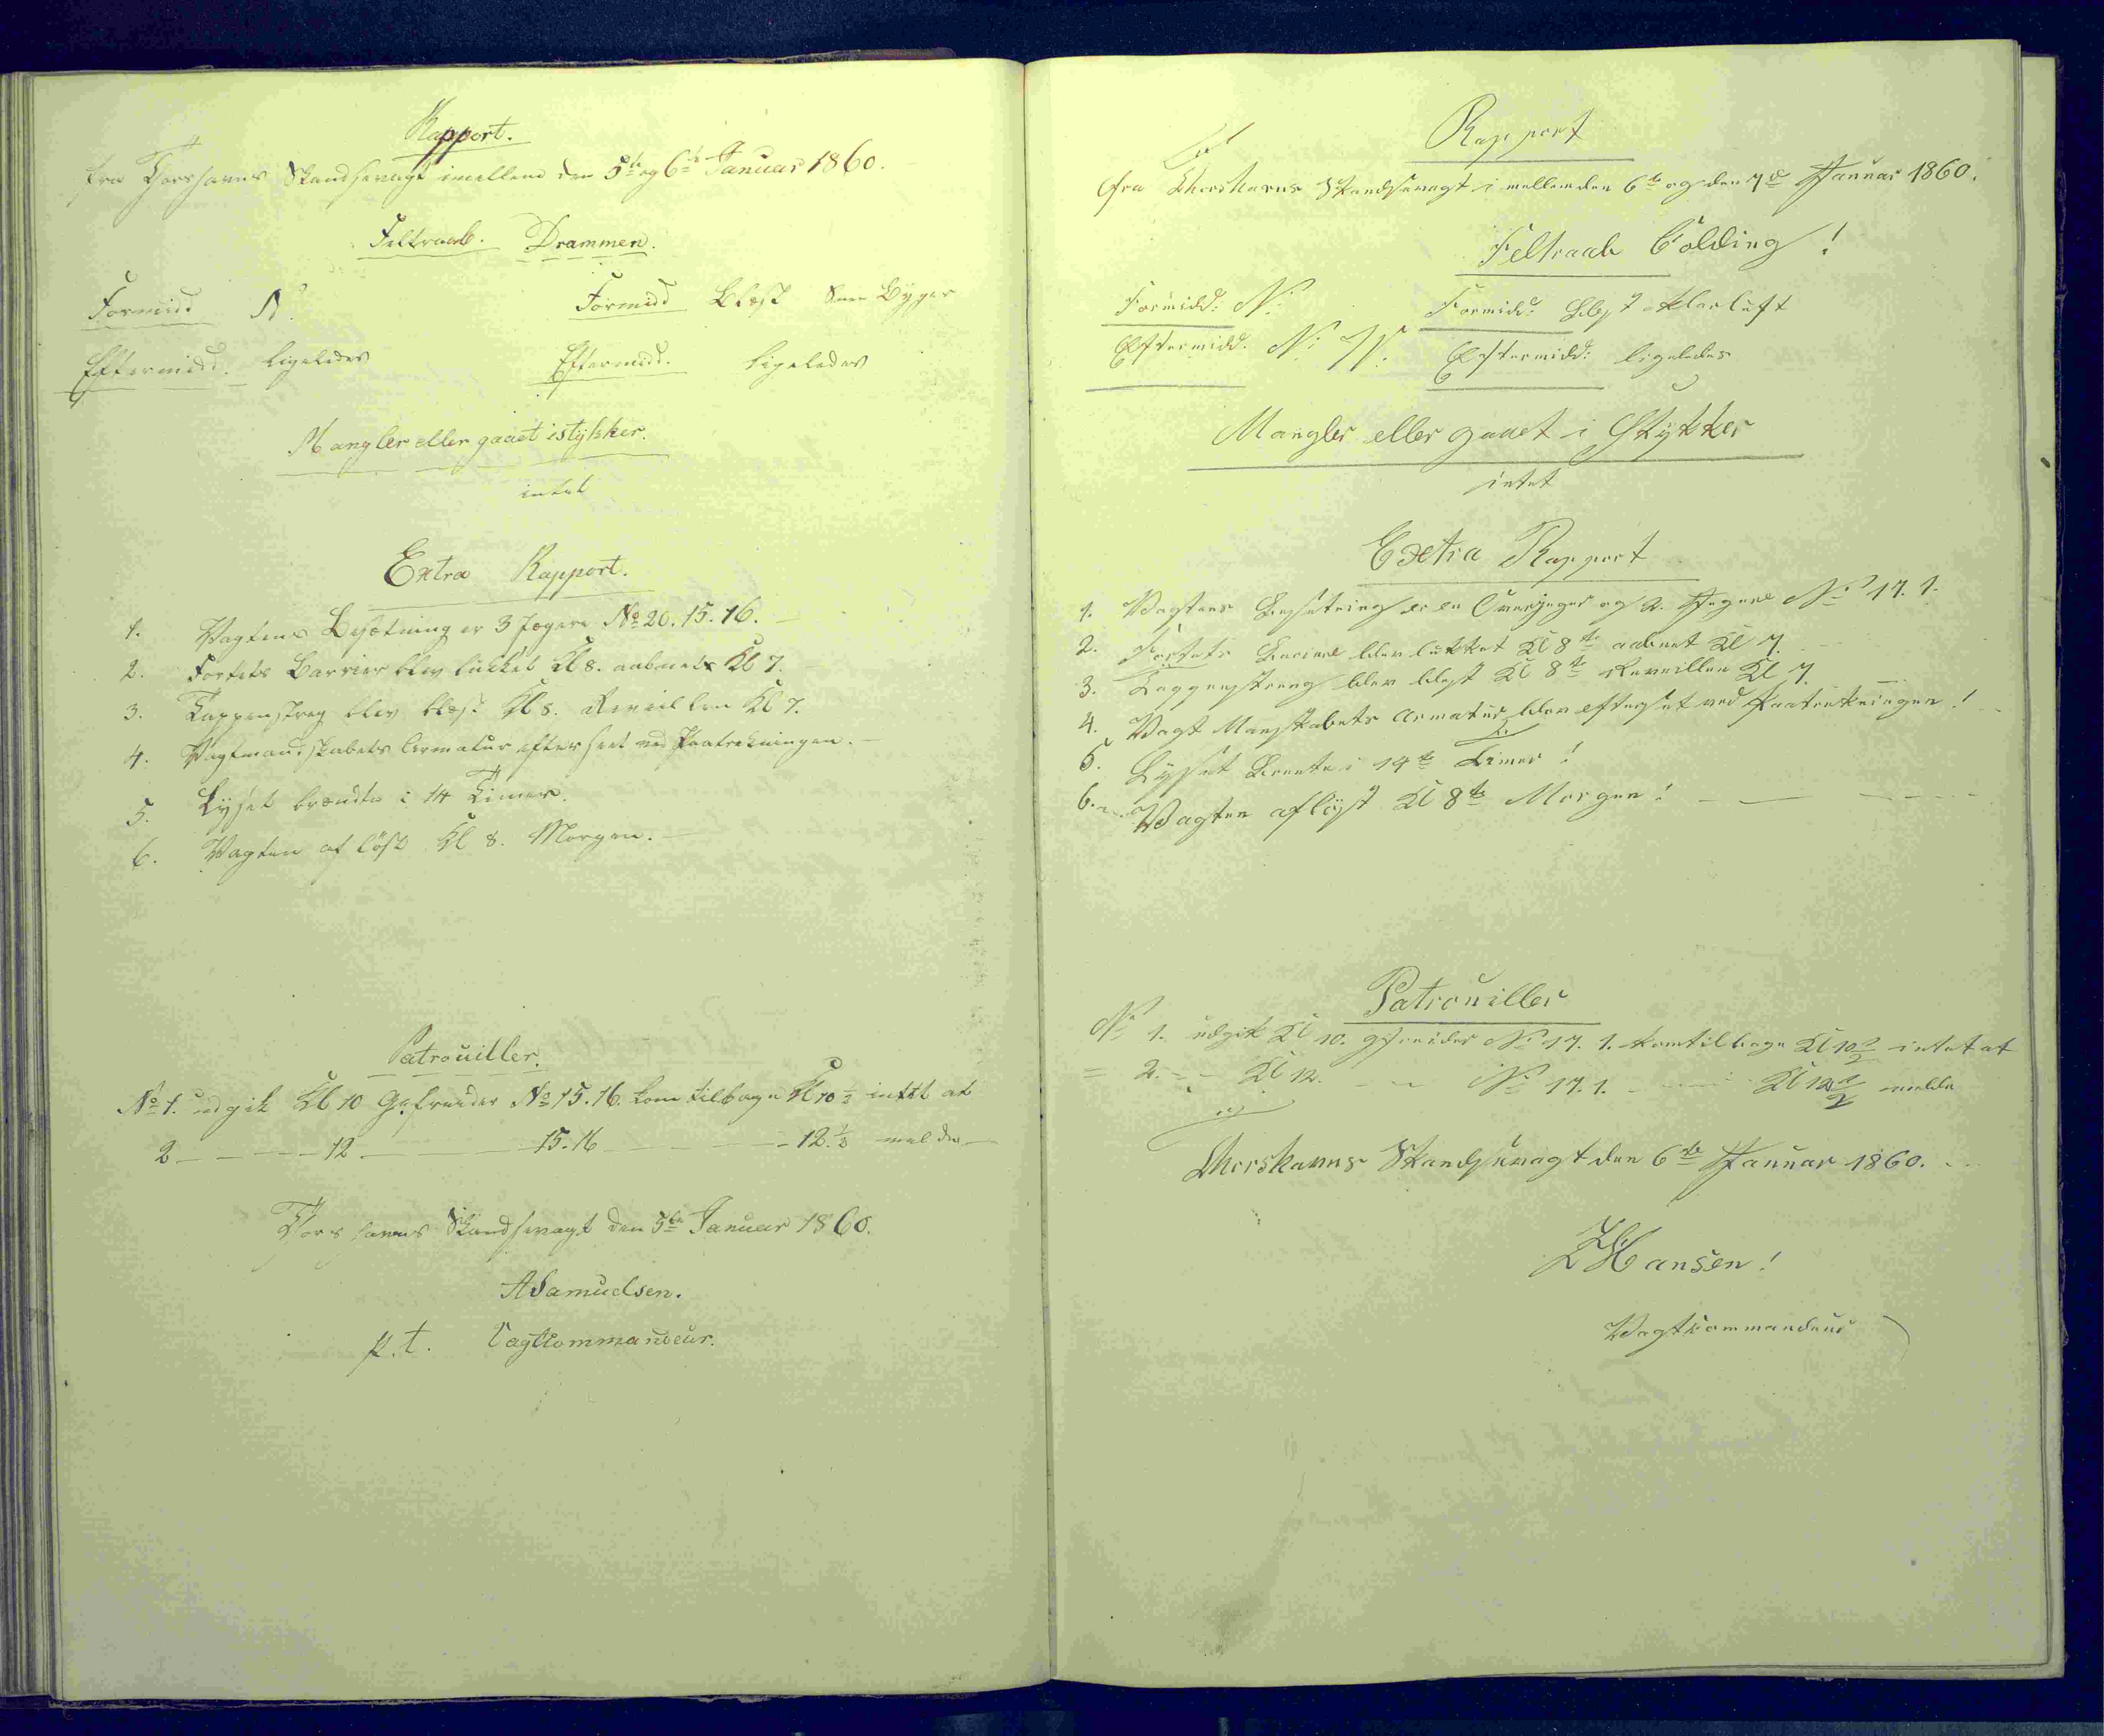 Rapport.
fra Thorshavns Skandsevagt imellem den 5te og 6te Januar 1860.
Feltraab. Drammen.
Formidd N. Formidd Blæst Snee Byger
Eftermidd. ligeledes Eftermidd. ligeledes
Mangler eller gaaet istykker.
intet
Extra Rapport.
1. Vagtens Besætning er 3 Jægere No 20. 15. 16.
2. Fortets Barrier blev lukket Kl 8. aabnet Kl 7.
3. Tappenstreg blev blæst Kl 8. Reveillen Kl 7.
4. Vagtmandskabets Armatur efterseet ved Paatrekningen.
5. Lyset brændte i 14 Timer.
6. Vagten aflöst Kl 8. Morgen.
Patrouiller.
No 1. udgik Kl 10 Gefreider No 15. 16. kom tilbage Kl 10 1/2 intet at
2 — — — 12 — — 15. 16 — — — 12. 1/2 melde
Thorshavns Skandsevagt den 5te Januar 1860.
ASamuelsen.
p.t. Vagtcommandeur.
Rapport
fra Thorshavns Skandsevagt i mellem den 6te og den 7de Januar 1860.
Feltraab Colding!
Formidd: N: Formidd: Blest klarluft
Eftermidd: N: W. Eftermidd: ligeledes
Mangler eller gaaet i Stykker
intet
Extra Rapport
1. Vagtens Besetning er en Overjeger og 2. Jegere No 17. 1.
2. Fortets Bariere blev lukket Kl 8te aabnet Kl 7.
3. Tappenstreng blev blest Kl 8te Reveillen Kl 7
4. Vagt Manskabets Armatur blev efterset ved Paatrekningen!
5. Lyset Brente i 14te Timer!
6. Vagten aflöst Kl 8te Morgen!
Patrouiller
No 1. udgik Kl 10. gfreider No 17. 1. kom tilbage Kl 10 1/2 intet at
= 2. - - Kl 12. - - No 17. 1. - - Kl 12 1/2 melde
Thorshavns Skandsevagt den 6te Januar 1860.
Hansen!
Vagtkommandeur